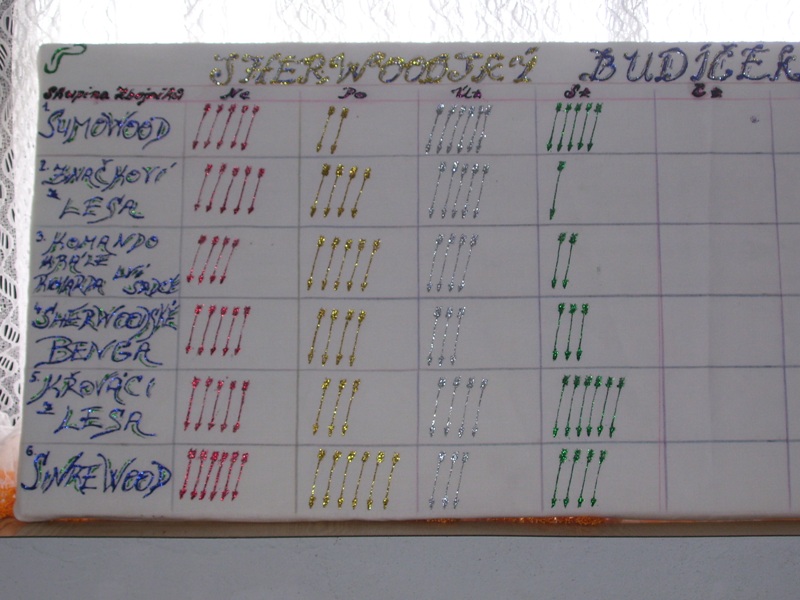 SHERWOODSKÝ BUDÍČEK
Skupina Zbojníků Ne Po Út St Čt
1. SUMOWOOD
2. ZNAČKOVÍ
Z LESA
3. KOMANDO
KRÁLE
LVÍ SRDCE
4. SHERWOODSKÉ
BENGA
5. KŘOVÁCI
Z LESA
6. SINKEWOOD